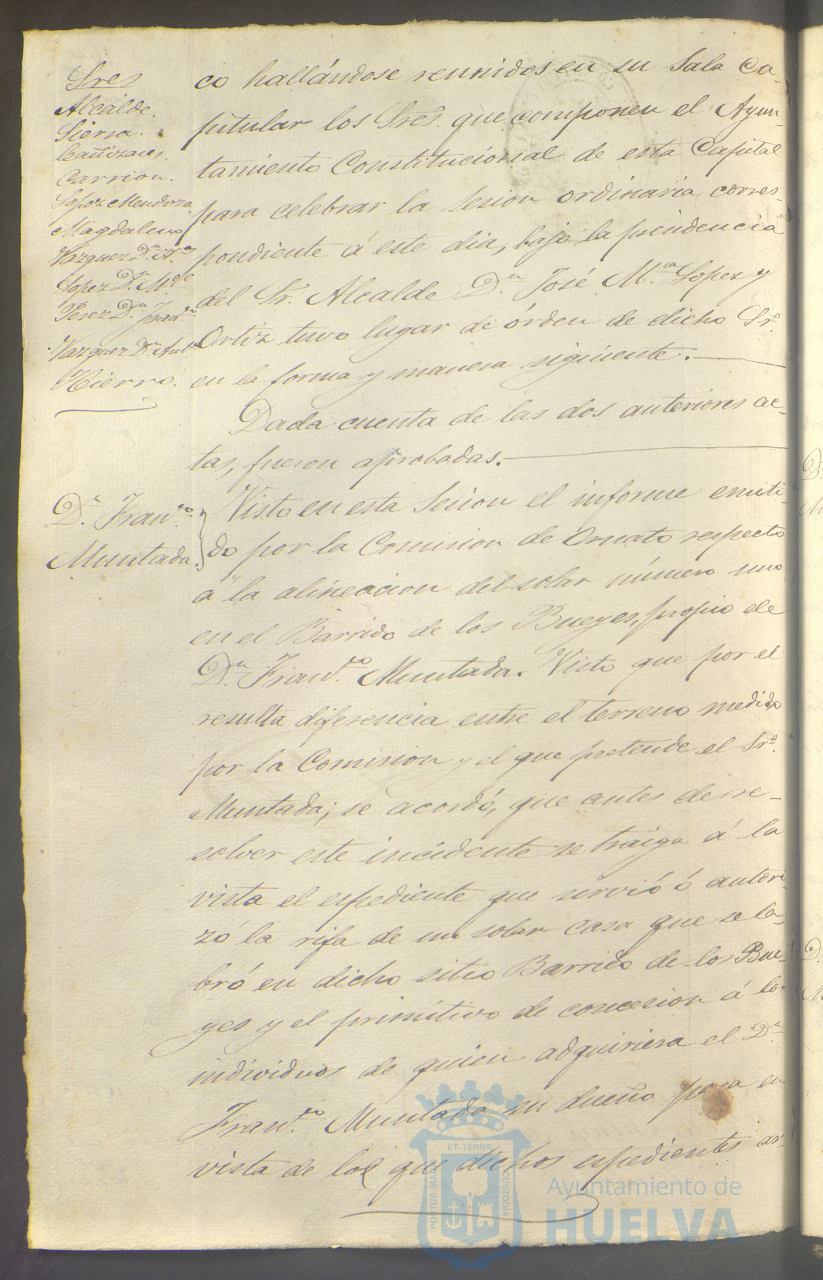 Sres
Alcalde.
Sierra.
Cañizares.
Carrion.
Lopez Mendoza
Magdaleno
Vazquez Dn. Ao
Lopez Dn. Mde
Perez Dn. Frano.
Vazquez Dn. Anto
Hierro.
co hallándose reunidos en su Sala Ca-
pitular los Sres. que componen el Ayun-
tamiento Constitucional de esta Capital
para celebrar la sesion ordinaria corres-
pondiente á este dia, bajo la precidencia
del Sr. Alcalde Dn. José Ma. Lopez y
Ortiz tuvo lugar de órden de dicho Sr.
en la forma y manera siguiente.
Dada cuenta de las dos anteriores ac-
tas, fueron aprobadas.
Dn. Franco.
Muntada.
Visto en esta Sesion el informe emiti-
do por la Comision de Ornato respecto
á la alineacion del solar número uno
en el Barrido de los Bueyes, propio de
Dn. Franco. Muntada. Visto que por el
resulta diferencia entre el terreno medido
por la Comision y el que pretende el Sr.
Muntada; se acordó, que antes de re-
solver este incidente se traiga á la
vista el espediente que sirvió ó autori-
zó la rifa de un solar casa que se la-
bró en dicho sitio Barrido de los Bue-
yes y el primitivo de concesion á los
individuos de quien adquiriera el Dn.
Franco. Muntada su dueño para en
vista de los que dichos espedientes ar-
PORTUS MARIS ET TERRAE CUSTODIA
Ayuntamiento de
HUELVA